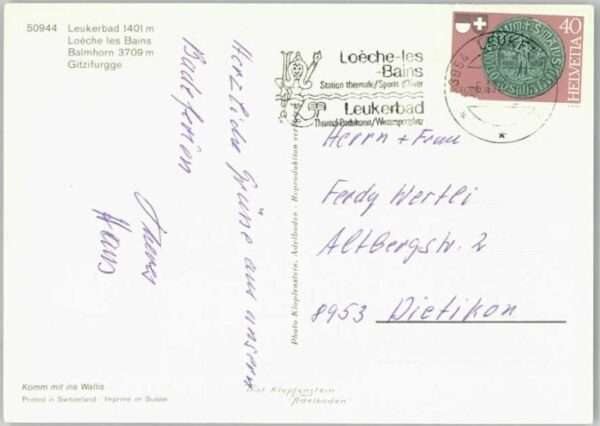 50944 Leukerbad 1401 m
Loèche les Bains
Balmhorn 3709 m
Gitzifurgge
Herzliche Grüsse aus unsern
Badeferien
Hans
Loèche-les
-Bains
Station thermale/Sports d'hiver
Leukerbad
3954 LEUKERBAD
40
HELVETIA
Herrn + Frau
Ferdy Wertli
Altbergstr. 2
8953 Dietikon
Photo Klopfenstein, Adelboden - Reproduktion
Komm mit ins Wallis
Printed in Switzerland - Imprimé en Suisse
Klopfenstein
Adelboden